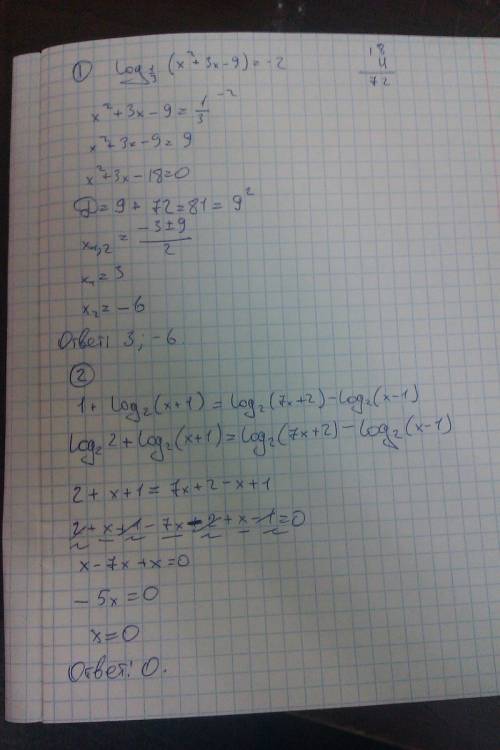 ① log_{1/3} (x²+3x-9)=-2
18
4
72
x²+3x-9=1/3^{-2}
x²+3x-9=9
x²+3x-18=0
D=9+72=81=9²
x_{1,2}=(-3±9)/2
x₁=3
x₂=-6
Ответ: 3; -6.
②
1+log₂(x+1)=log₂(7x+2)-log₂(x-1)
log₂2+log₂(x+1)=log₂(7x+2)-log₂(x-1)
2+x+1=7x+2-x+1
2+x+1-7x-2+x-1=0
x-7x+x=0
-5x=0
x=0
Ответ: 0.